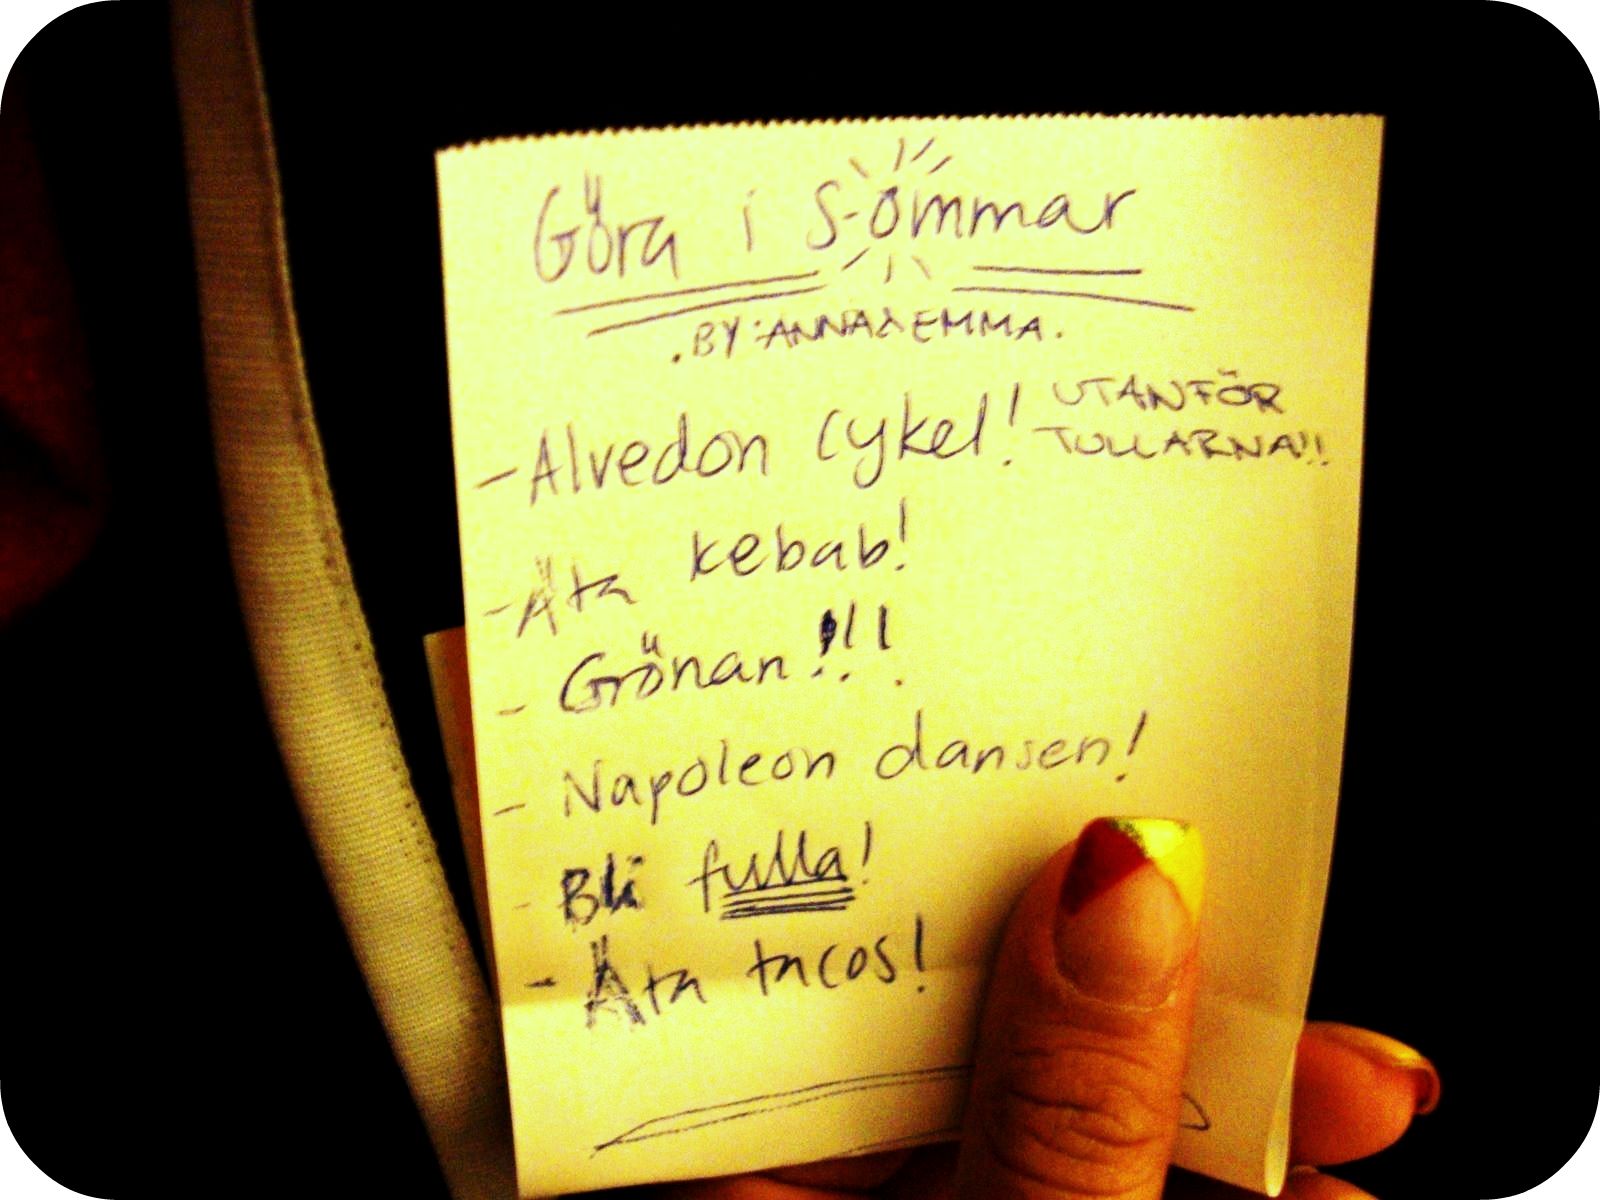 Göra i s-ommar
.BY: ANNA & EMMA.
- Alvedon cykel! UTANFÖR
TULLARNA!!
- Äta kebab!
- Grönan!!!
- Napoleon dansen!
- Bli fulla!
- Äta tacos!